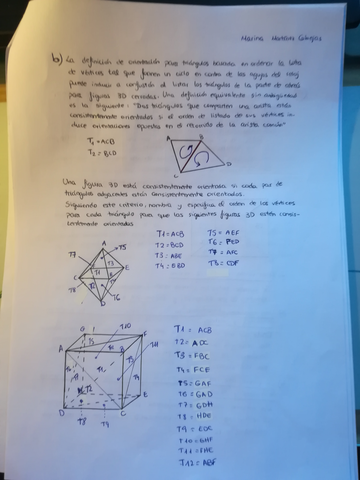 Marina
b) La definición de orientación para triángulos basada en ordenar la lista
de vértices tal que formen un ciclo en contra de las agujas del reloj
puede inducir a confusión al listar los triángulos de la parte de atrás
para figuras 3D cerradas. Una definición equivalente sin ambigüedad
es la siguiente: "Dos triángulos que comparten una arista están
consistentemente orientados si el orden de listado de sus vértices in-
duce orientaciones opuestas en el recorrido de la arista común"
T1 = ACB
T2 = BCD
A B
C D
Una figura 3D está consistentemente orientada si cada par de
triángulos adyacentes están consistentemente orientados.
Siguiendo este criterio, nombra y especifica el orden de los vértices
para cada triángulo para que las siguientes figuras 3D estén consis-
tentemente orientadas
T1 = ACB T5 = AEF
T2 = BCD T6 =
T3 = ABE T7 = AFC
T4 = EBD T8 = CDF
A
T7 T5
T1 T3
C E
T8 B
D T6
T1 = ACB
T2 = ADC
T3 = FBC
T4 = FCE
T5 = GAF
T6 = GAD
T7 = GDH
T8 = HDE
T9 = EDC
T10 = GHF
T11 = FHE
T12 = ABF
G F
T10
A B T11
T3
T2 T4
E
D C
T8 T9